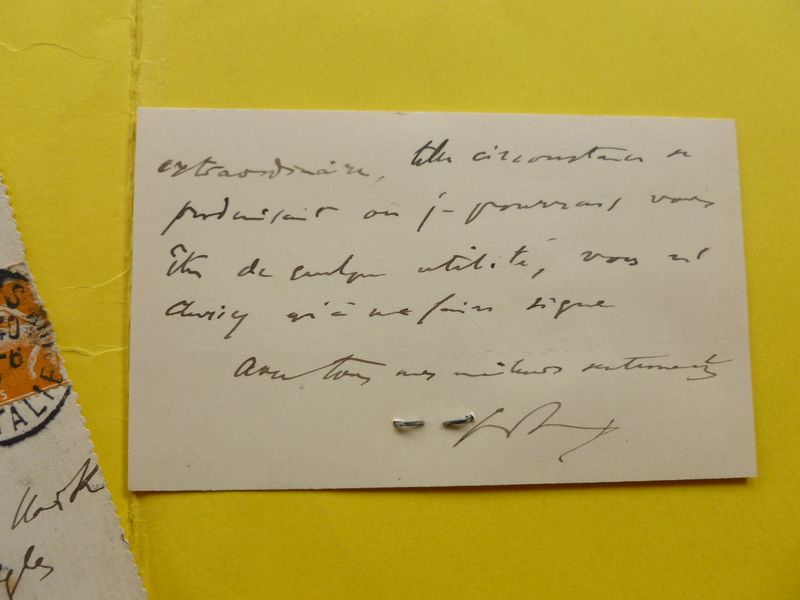 extraordinaire, telle circonstance se
produisait où je pourrais vous
être de quelque utilité, vous n'
auriez qu'à me faire signe
Avec tous mes meilleurs sentiments
S
40
ITALIE